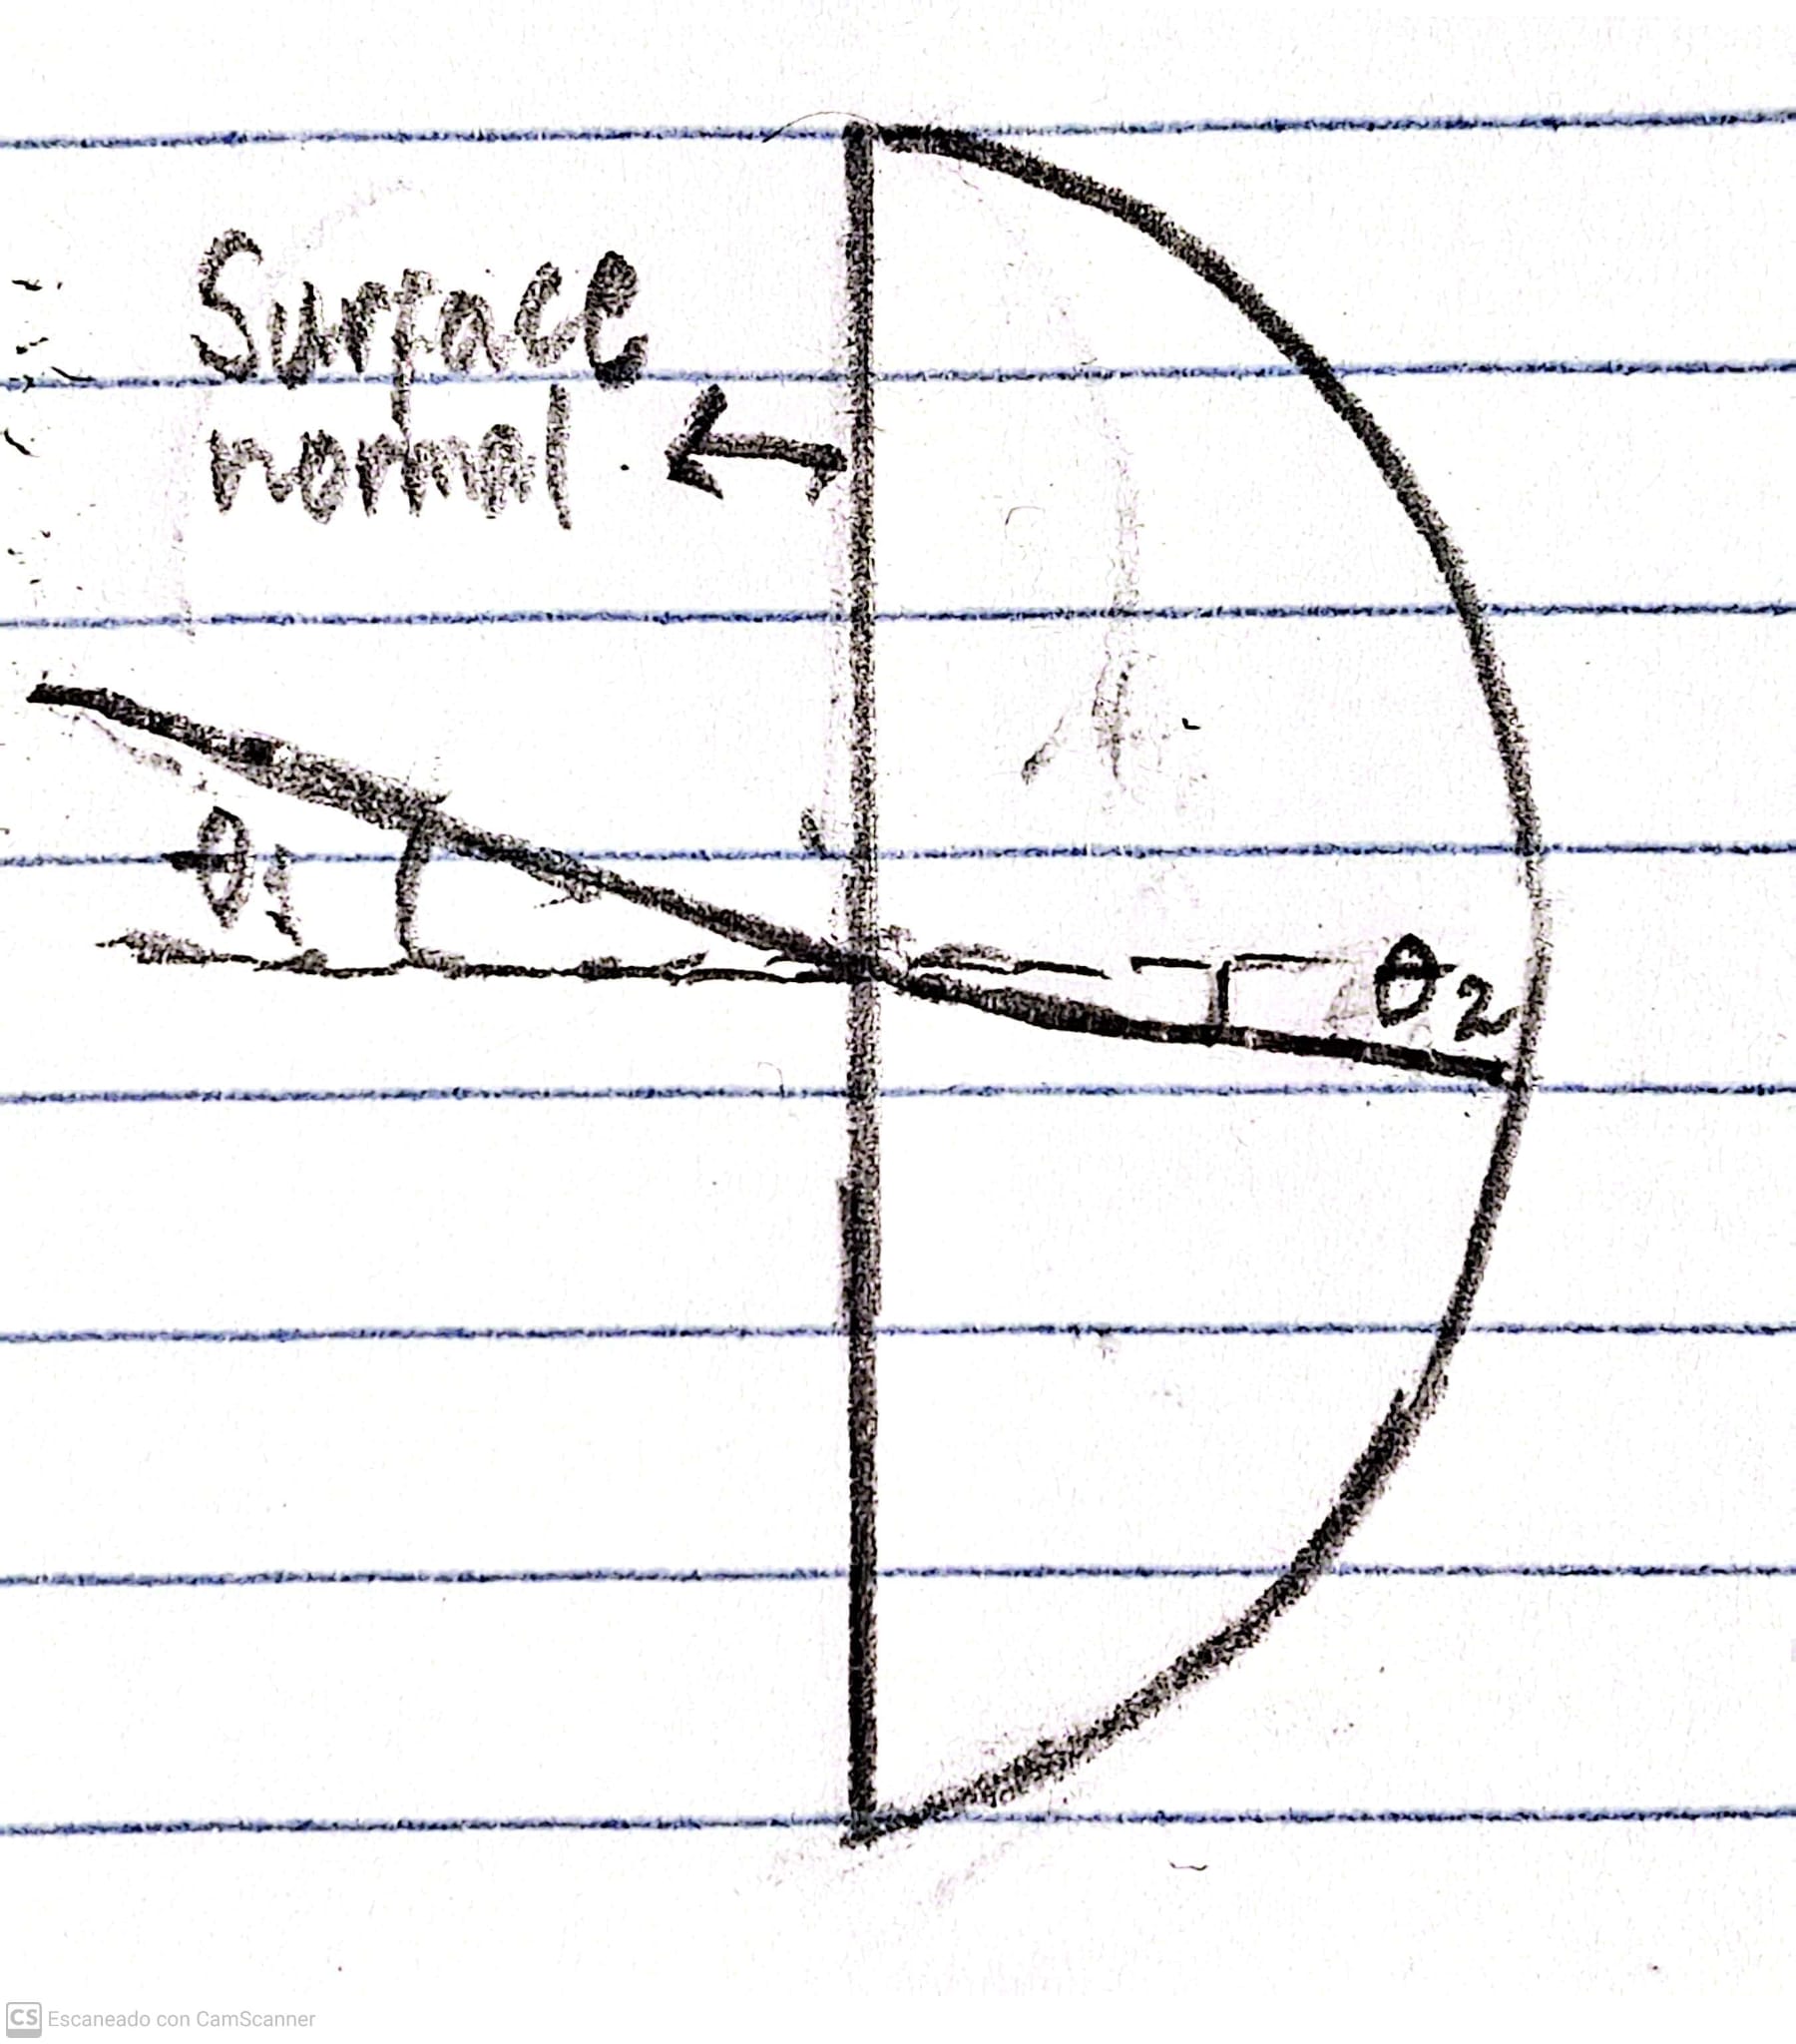 Surface
normal
θ1
θ2
CS Escaneado con CamScanner